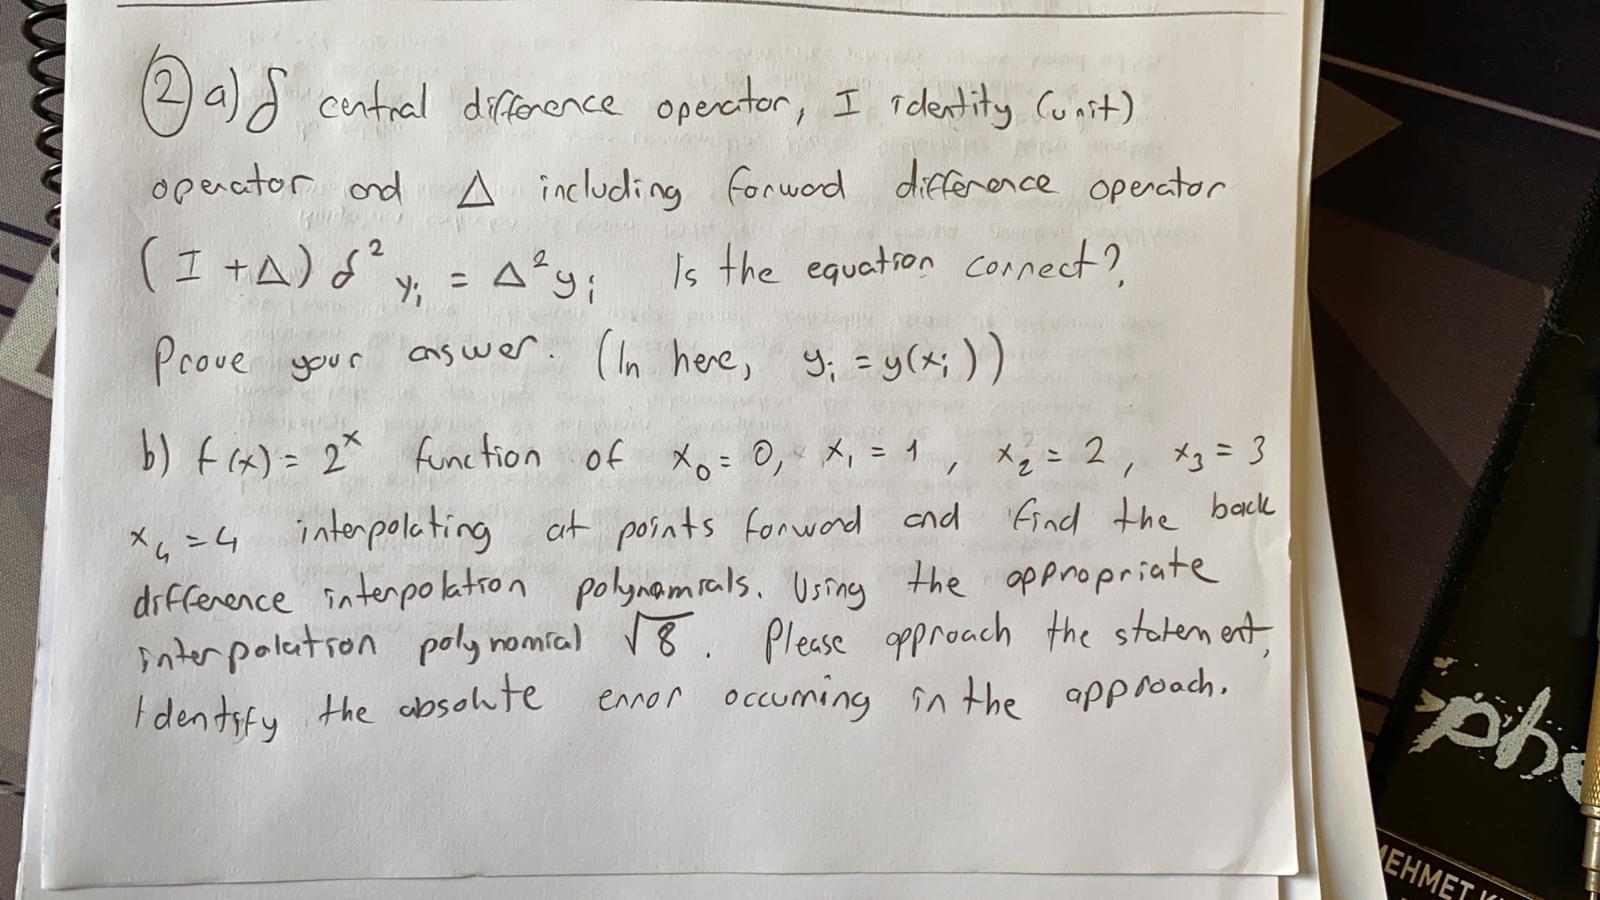 2) a) δ central difference operator, I identity (unit)
operator and Δ including forward difference operator
(I + Δ) δ² yᵢ = Δ² yᵢ Is the equation correct?
Prove your answer. (In here, yᵢ = y(xᵢ))
b) f(x) = 2ˣ function of x₀ = 0, x₁ = 1, x₂ = 2, x₃ = 3
x₄ = 4 interpolating at points forward and find the back
difference interpolation polynomials. Using the appropriate
interpolation polynomial √8. Please approach the statement,
Identify the absolute error occuming in the approach.
phe
MEHMET